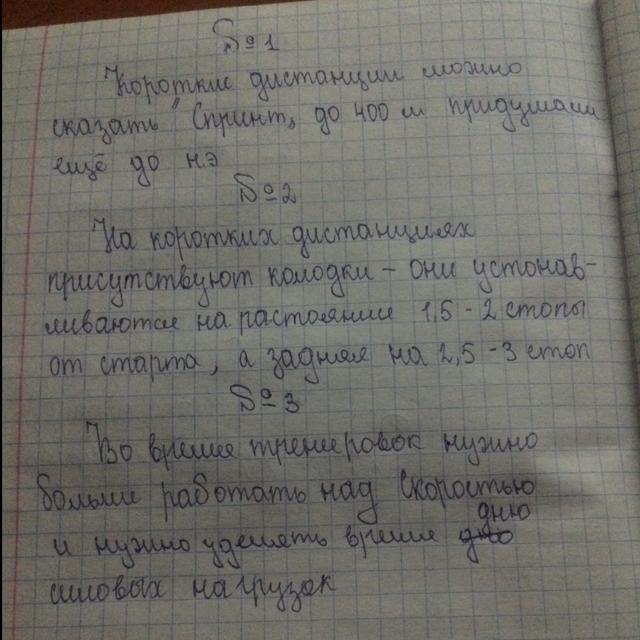 №1
Короткие дистанции можно
сказать "Спринт„ до 400 м придумали
ещё до нэ
№2
На коротких дистанциях
присутствуют колодки - они устонав-
ливаются на растояние 1,5 - 2 стопы
от старта, а задняя на 2,5 - 3 стоп
№3
Во время тренеровок нужно
больше работать над Скоростью
дню
и нужно уделять время
силовых нагрузок